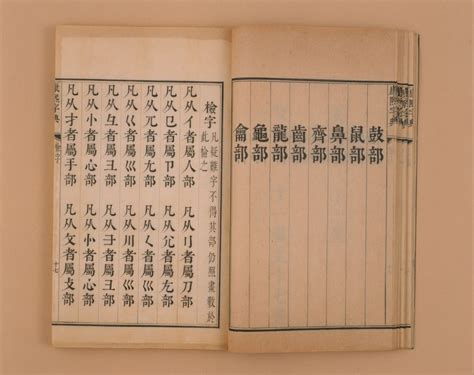 鼓部
鼠部
鼻部
齊部
齒部
龍部
龜部
龠部
檢字 凡疑難字不得其部仍照畫數於此檢之
凡从亻者屬人部 凡从刂者屬刀部
凡从㔾者屬卩部 凡从尣者屬尢部
凡从兀者屬尢部 凡从く者屬巛部
凡从巜者屬巛部 凡从川者屬巛部
凡从彑者屬彐部 凡从彐者屬彐部
凡从忄者屬心部 凡从㣺者屬心部
凡从扌者屬手部 凡从攵者屬攴部
康熙字典 檢字